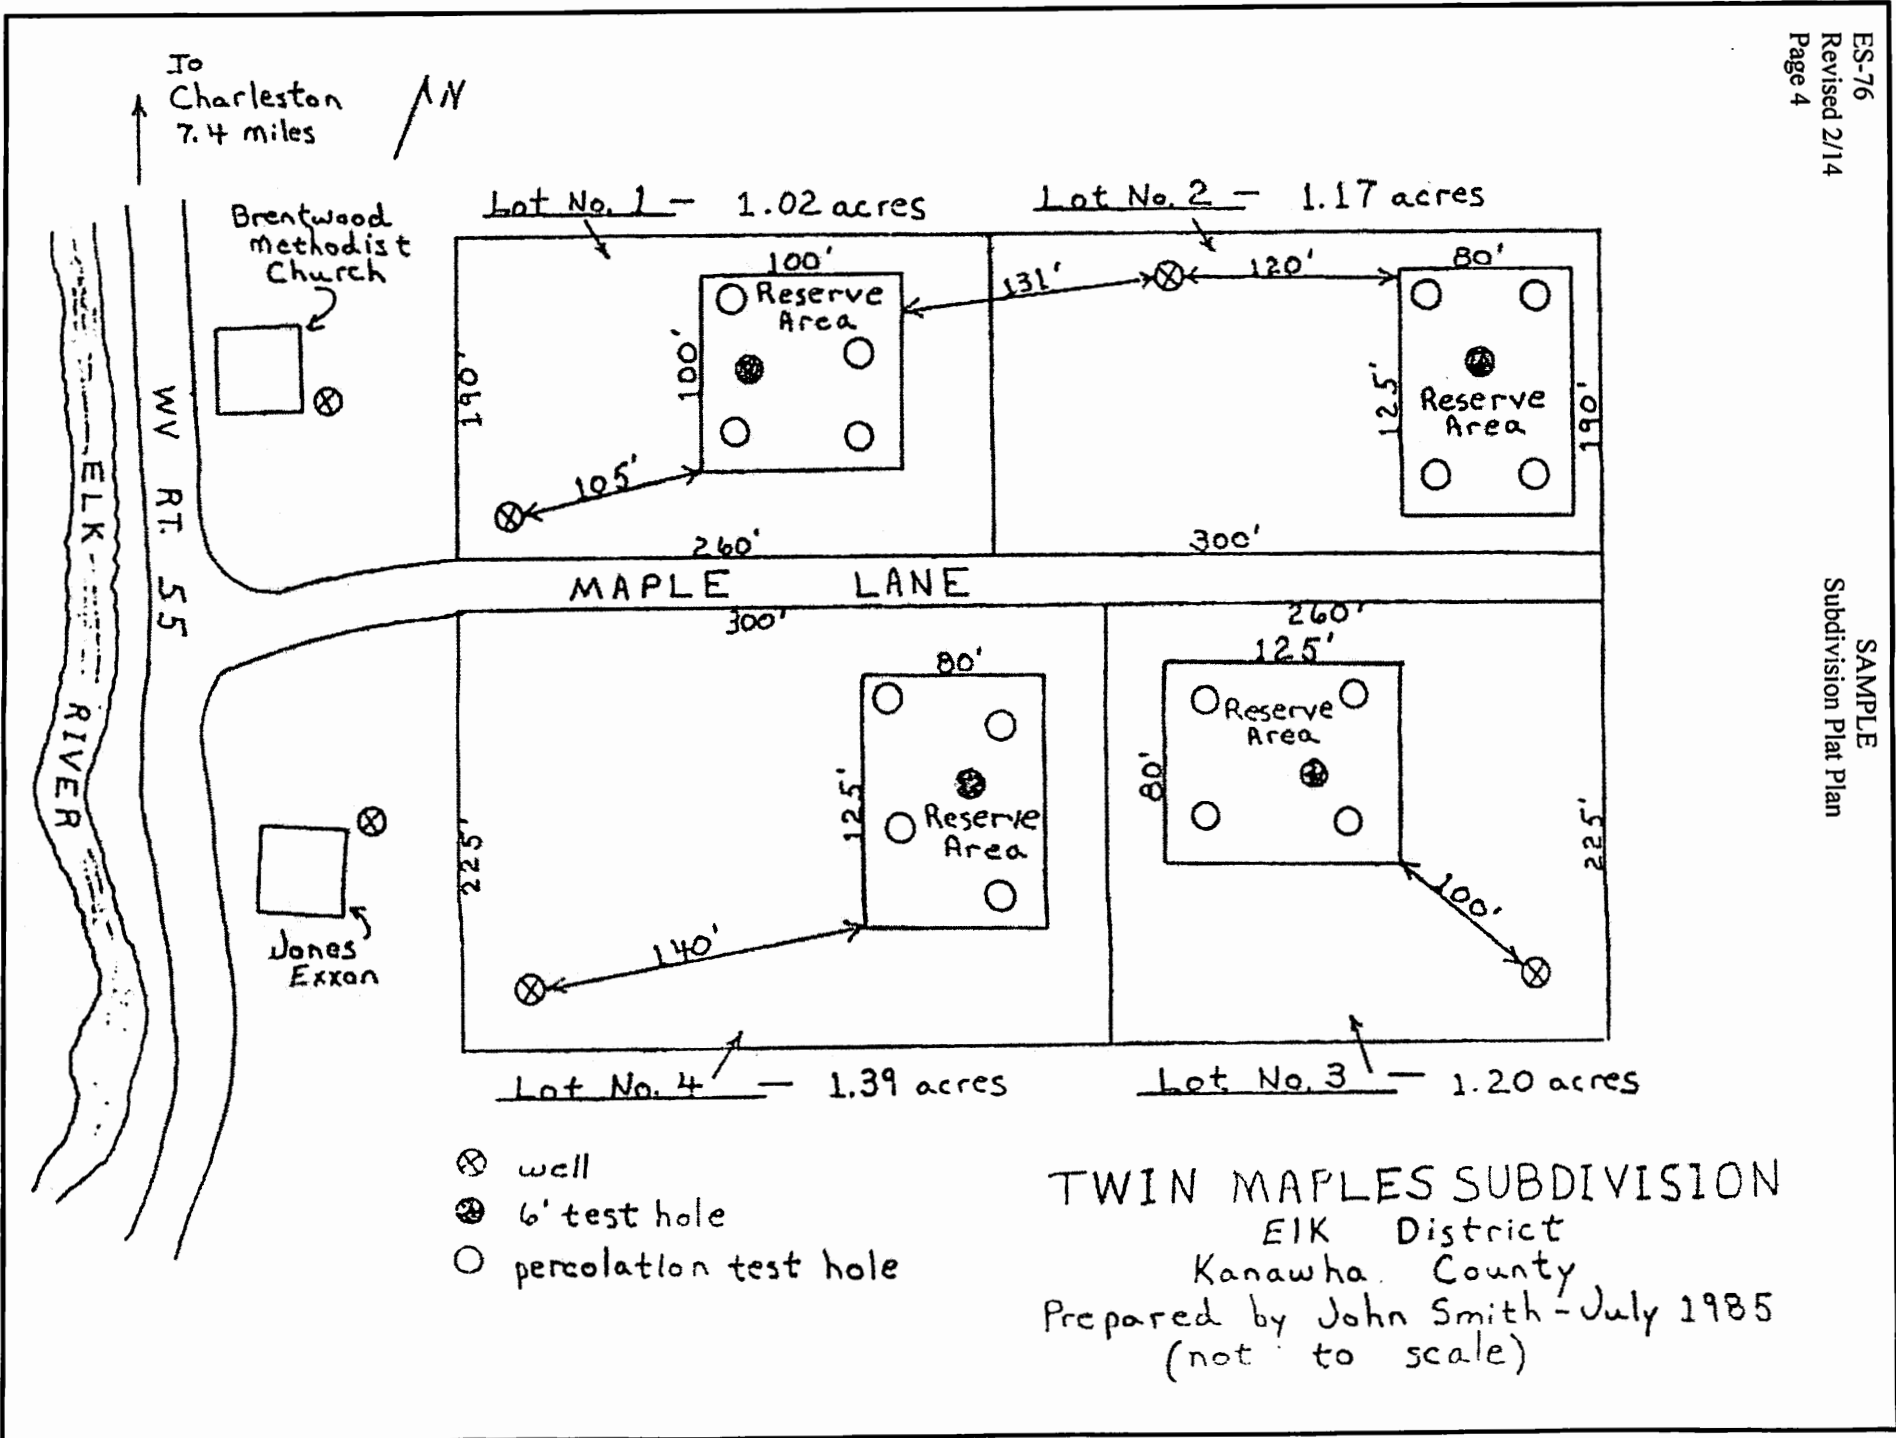 ES-76
Revised 2/14
Page 4
SAMPLE
Subdivision Plat Plan
To
Charleston
7.4 miles
N
Brentwood
Methodist
Church
WV RT. 55
ELK RIVER
Jones
Exxon
Lot No. 1 - 1.02 acres
100'
Reserve
Area
100'
190'
105'
260'
Lot No. 2 - 1.17 acres
131'
120'
80'
125'
Reserve
Area
190'
300'
MAPLE LANE
300'
80'
125'
Reserve
Area
225'
140'
Lot No. 4 - 1.39 acres
260'
125'
Reserve
Area
80'
225'
100'
Lot No. 3 - 1.20 acres
well
6' test hole
percolation test hole
TWIN MAPLES SUBDIVISION
Elk District
Kanawha County
Prepared by John Smith - July 1985
(not to scale)